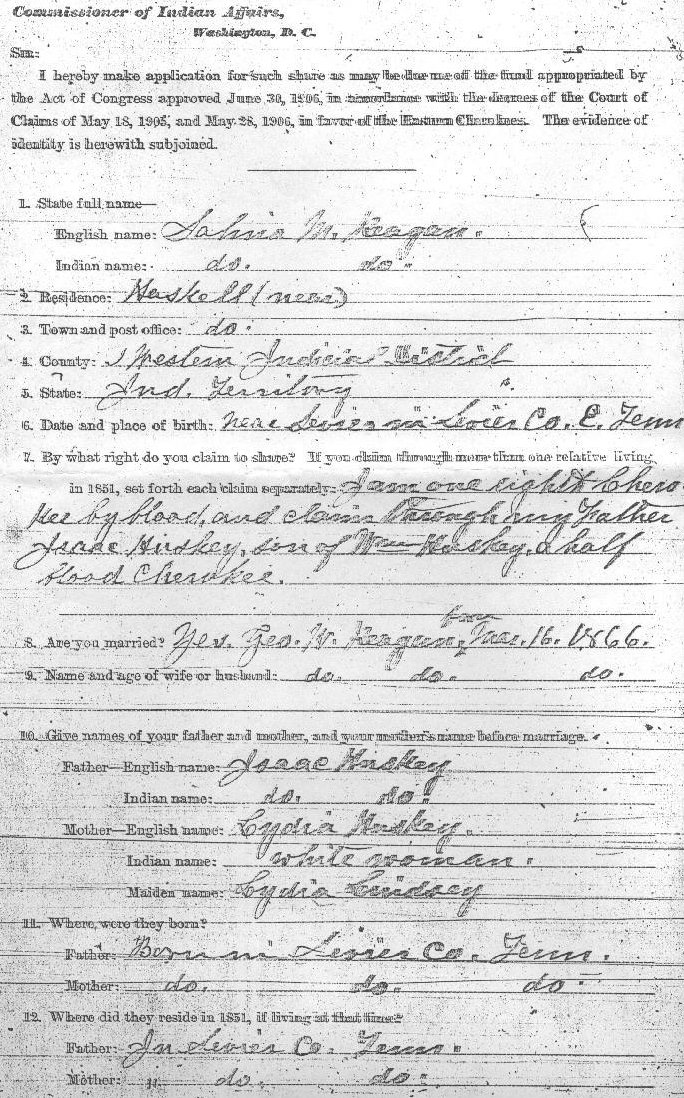 Commissioner of Indian Affairs,
Washington, D. C.
Sir:
I hereby make application for such share as may be due me of the fund appropriated by
the Act of Congress approved June 30, 1906, in accordance with the decrees of the Court of
Claims of May 18, 1905, and May 28, 1906, in favor of the Eastern Cherokees. The evidence of
identity is herewith subjoined.
1. State full name—
English name: M. Keagan.
Indian name: do. do.
2. Residence: Haskell (near)
3. Town and post office: do.
4. County: Western District
5. State: Ind. Territory
6. Date and place of birth: near Sevier in Sevier Co. E. Tenn
7. By what right do you claim to share? If you claim through more than one relative living
in 1851, set forth each claim separately: I am one eight Chero-
kee by blood, and claim through my Father
Isaac Huskey, son of Wm Huskey, a half
blood Cherokee.
8. Are you married? Yes. Geo. W. Keagan, born Mar. 16. 1866.
9. Name and age of wife or husband: do. do. do.
10. Give names of your father and mother, and your mother's name before marriage.
Father—English name: Isaac Huskey
Indian name: do. do.
Mother—English name: Lydia Huskey.
Indian name: white woman.
Maiden name: Lydia Lindsey
11. Where were they born?
Father: Born in Sevier Co. Tenn.
Mother: do. do. do.
12. Where did they reside in 1851, if living at that time?
Father: In Sevier Co. Tenn.
Mother: " do. do.